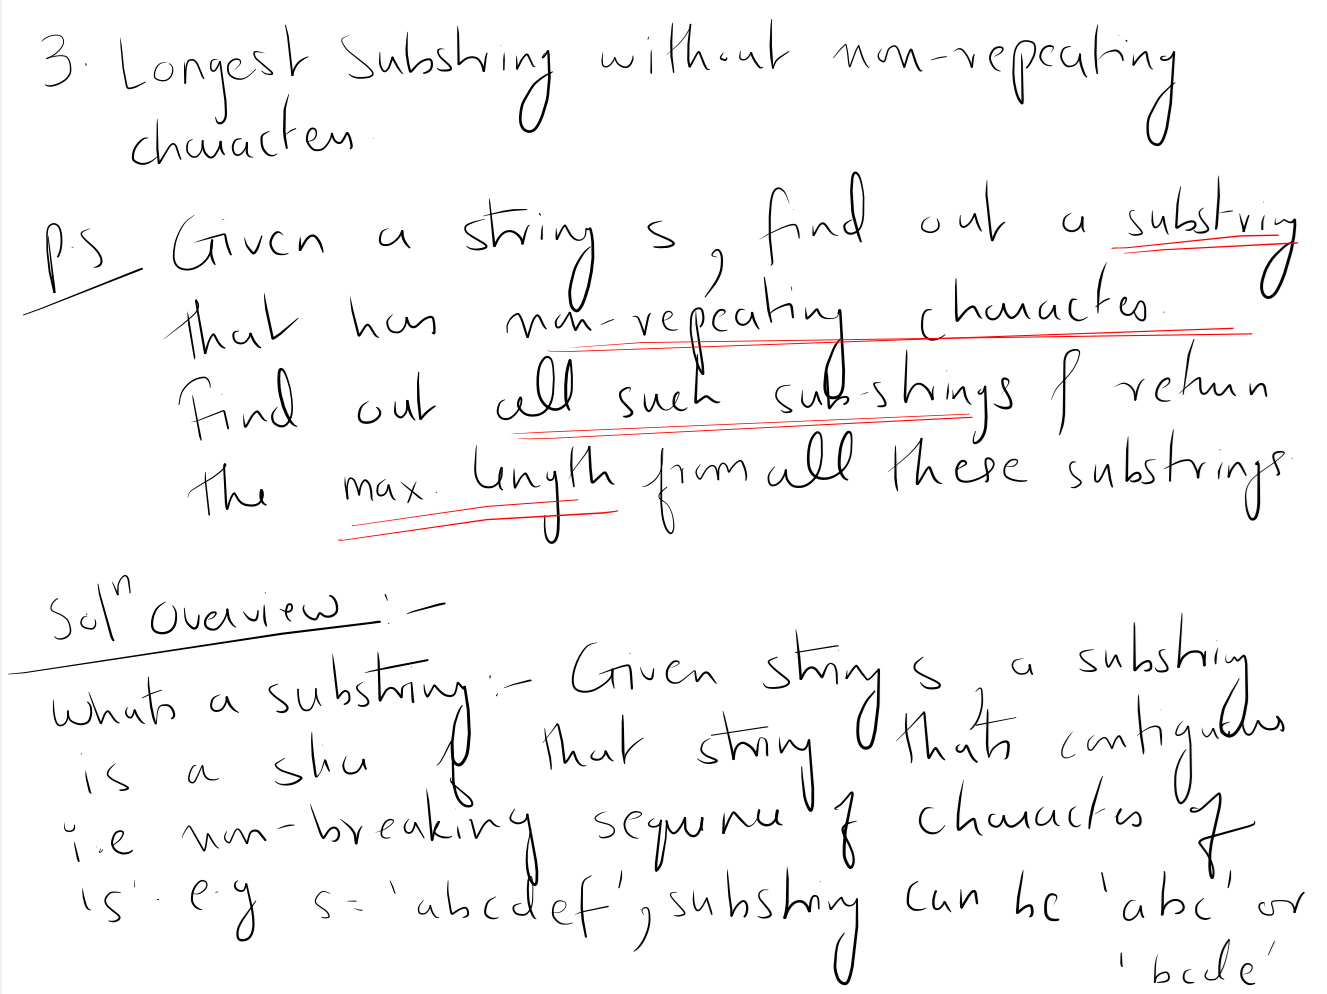 3. Longest Substring without non-repeating
characters
P.S Given a string s, find out a substring
that has non-repeating characters.
Find out all such sub-strings & return
the max. length from all these substrings.
Solⁿ Overview :-
Whats a substring :- Given string s, a substring
is a slice of that string thats contiguous
i.e non-breaking sequence of characters of
's'. e.g s = 'abcdef', substring can be 'abc' or
'bcde'